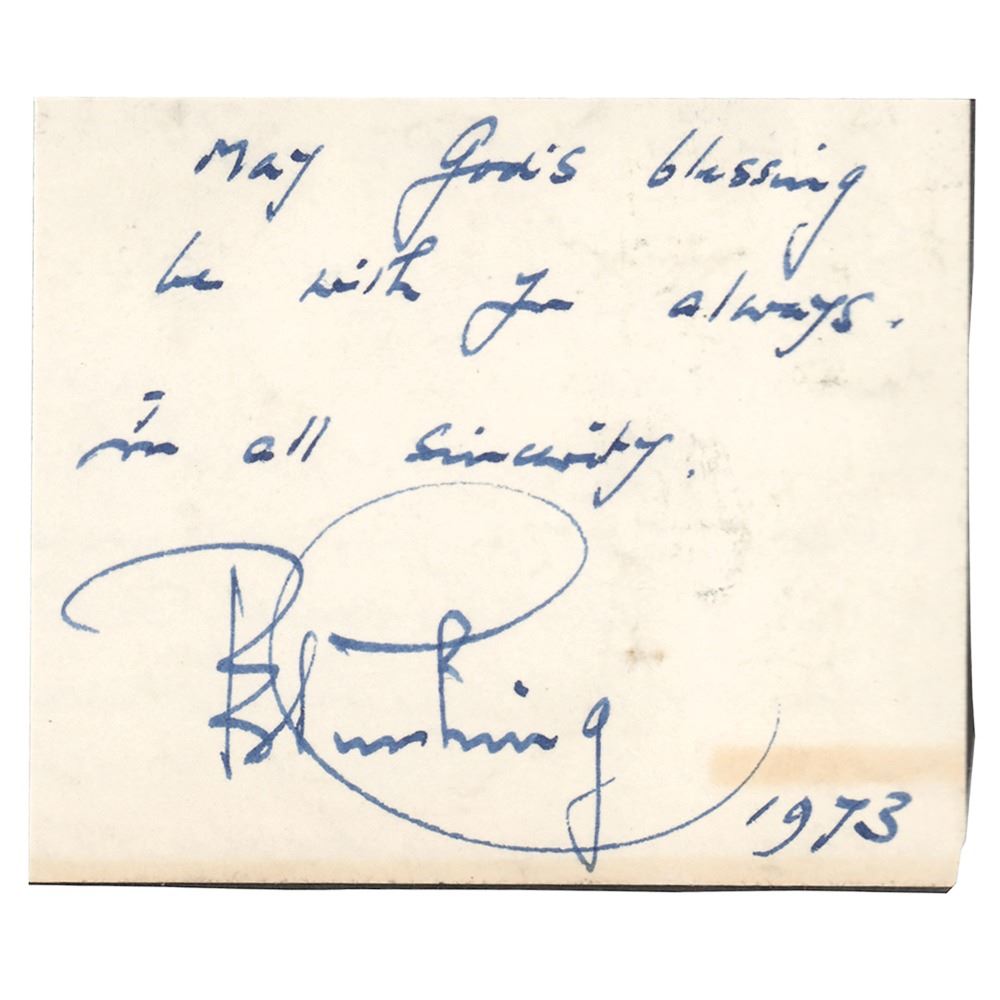 May God's blessing
be with you always.
in all sincerity.
Peter Cushing
1973